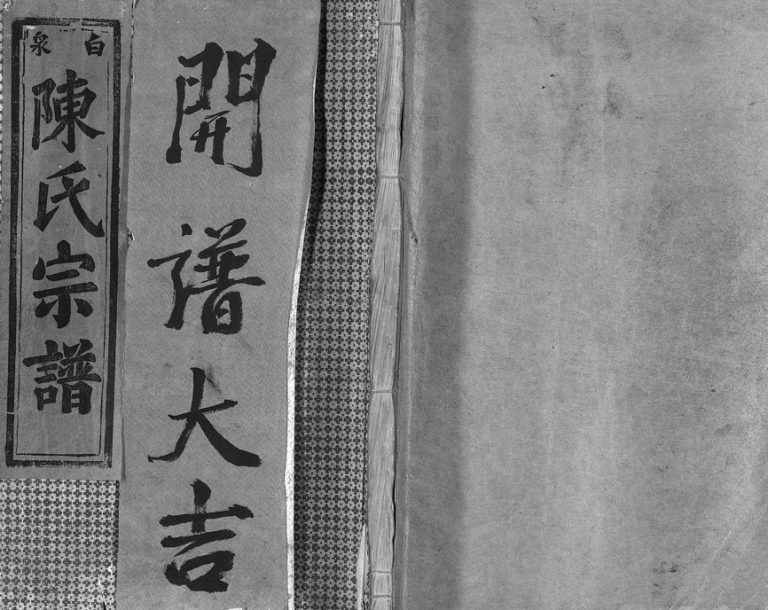 開譜大吉
白泉
陳氏宗譜